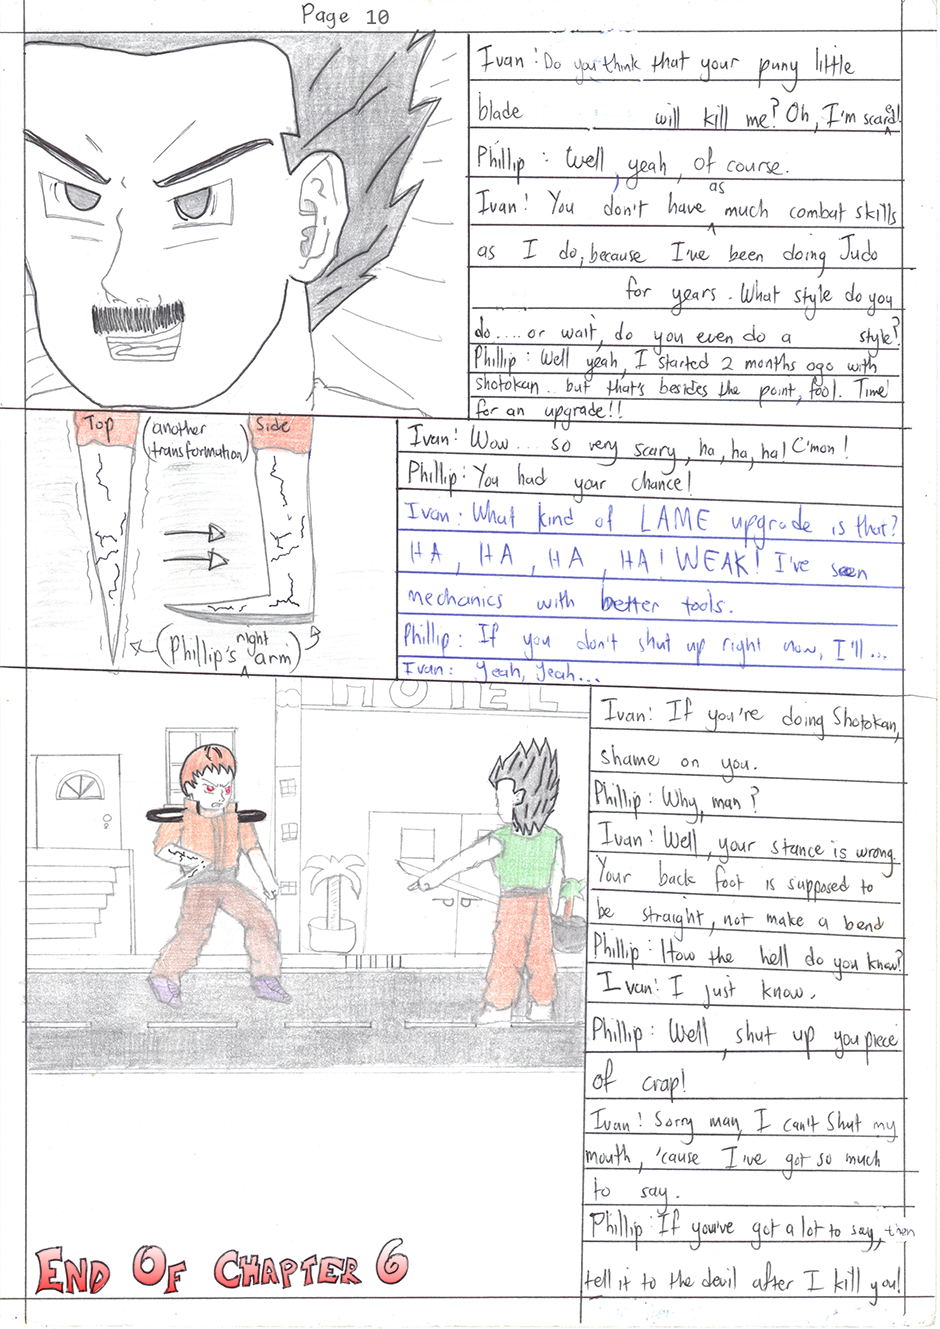 Page 10
Ivan: Do you think that your puny little
blade will kill me? Oh, I'm scared!
Phillip: Well, yeah, of course.
Ivan: You don't have as much combat skills
as I do, because I've been doing Judo
for years. What style do you
do.... or wait, do you even do a style?
Phillip: Well yeah, I started 2 months ago with
shotokan... but that's besides the point, fool. Time
for an upgrade!!
Top
(another
transformation)
Side
(Phillip's right arm)
Ivan: Wow... so very scary, ha, ha, ha! C'mon!
Phillip: You had your chance!
Ivan: What kind of LAME upgrade is that?
HA, HA, HA, HA! WEAK! I've seen
mechanics with better tools.
Phillip: If you don't shut up right now, I'll...
Ivan: Yeah, Yeah...
HOTEL
Ivan: If you're doing Shotokan,
shame on you.
Phillip: Why, man?
Ivan: Well, your stance is wrong.
Your back foot is supposed to
be straight, not make a bend
Phillip: How the hell do you know?
Ivan: I just know.
Phillip: Well, shut up you piece
of crap!
Ivan: Sorry man, I can't shut my
mouth, 'cause I've got so much
to say.
Phillip: If you've got a lot to say, then
tell it to the devil after I kill you!
END OF CHAPTER 6